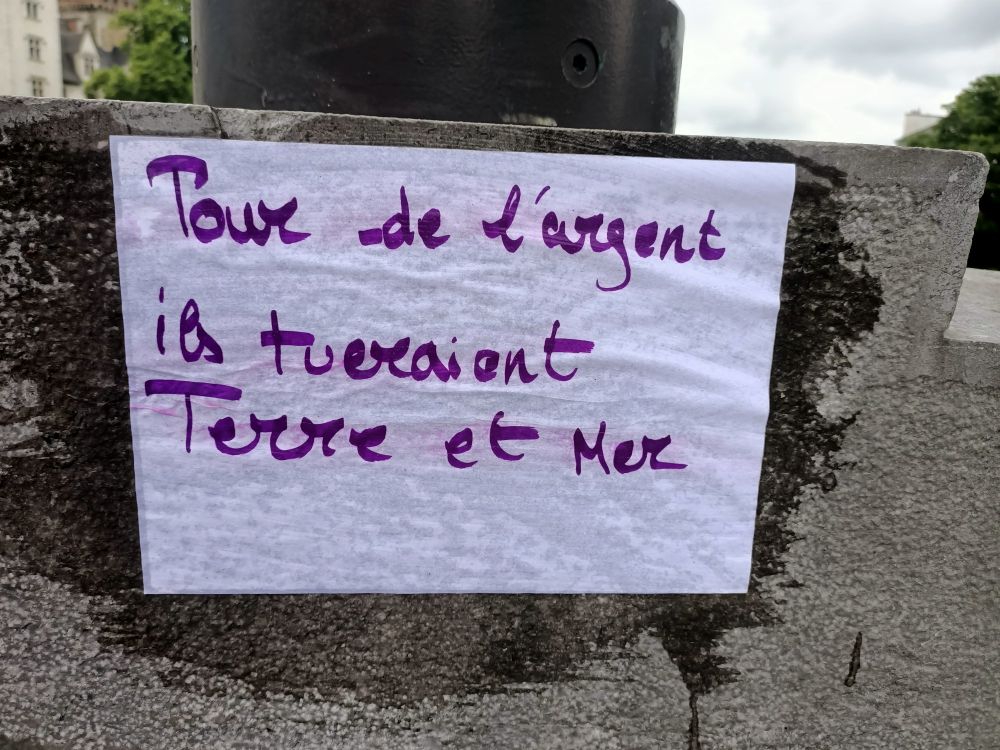 Pour de l'argent
ils tueraient
Terre et Mer